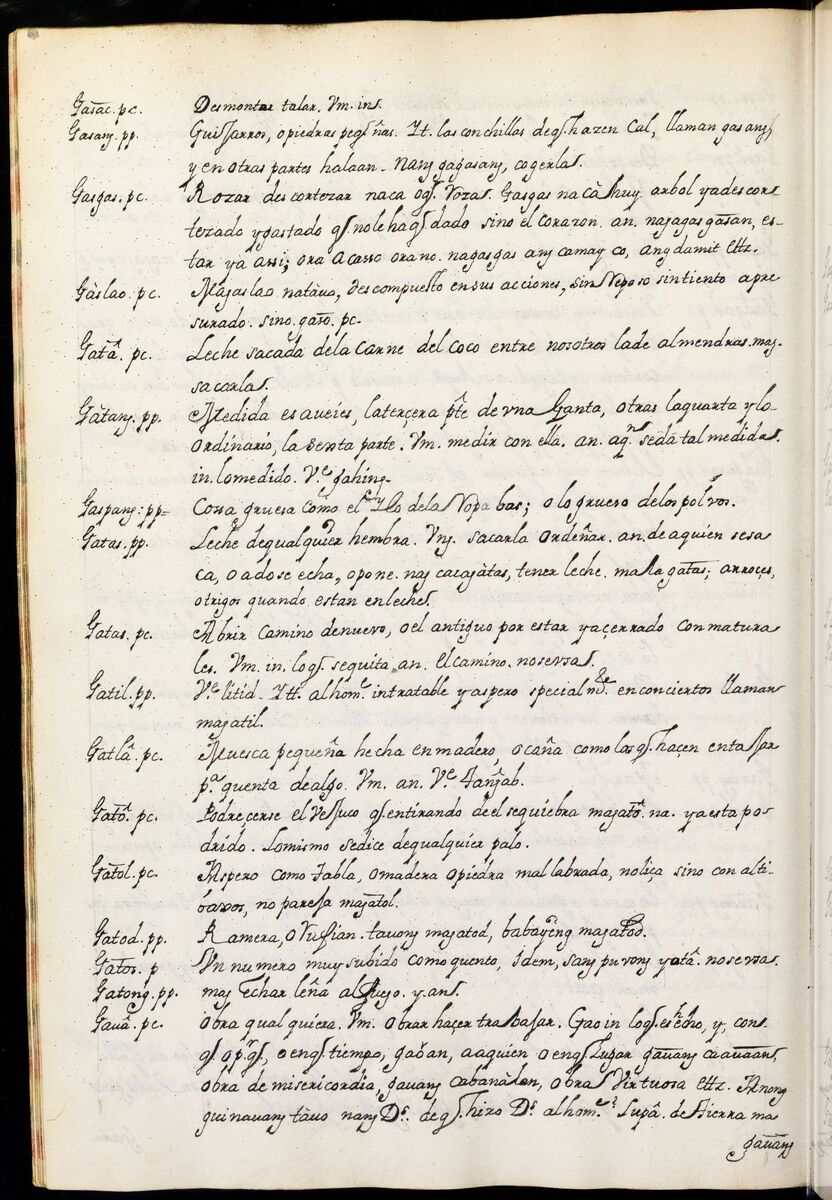 Gasac. pc. Desmontar talar. Vm. ins.
Gasang. pp. Guijarros, o piedras peqs. ñas. Yt. las conchillas de qs. hazen Cal, llaman gasang,
y en otras partes halaan. nang gagasang, cogerlas.
Gasgas. pc. Rozar descortezar naca og̃. Rozas. Gasgas na cà huy. arbol ya descor
tezado y gastado q̃ no le ha q̃ dado sino el corazon. an. nagagas gasan, es-
tar ya assi; ora acasso ora no. nagasgas ang camay co, ang damit ettz.
Gàslao. pc. Magaslao natàuo, descompuesto en sus acciones, sin Reposo sin tiento apre
surado. sino. gaso. pc.
Gatâ. pc. Leche sacada dela Carne del Coco entre nosotros la de almendras. mag.
sacarlas.
Gàtang. pp. Medida es aueíes, la terçera pte. de vna Ganta, otras la quarta y lo
ordinario, la sexta parte. Vm. medir con ella. an. aqn. seda tal medidas.
in. lo medido. Ve. gahing.
Gaspang. pp= Cossa gruesa como el Ylo dela Ropa basː; o lo grueso delos polvos.
Gatas. pp. Leche de qualquier hembra. Vng. sacarla ordeñar. an. de aquien sesa
ca, o adose echa, o pone. nag cacagàtas, tener leche. mala gatas; arroçes,
o trigos quando estan en leche.
Gatas. pc. Abrir Camino de nuevo, o el antiguo por estar ya çerrado con matura
les. Vm. in. lo q̃. se quita. an. el camino. no se vsa.
Gatil. pp. Ve. litid. Ytt. al home. intratable y aspero special me. en conciertos llaman
magatil.
Gatlâ. pc. Muesca pequeña hecha en madero, o caña como las q̃. haçen en tajar
pa. quenta de algo. Vm. an. Ve. tangab.
Gatô. pc. Podreçerse el Vejuco q̃. en tirando de el se quiebra magatô. na. ya esta po-
drido. Lo mismo se dice de qualquier palo.
Gatol. pc. Aspero como tabla, o madera o piedra mal labrada, no liça sino con alti-
baxos, no pareja magatol.
Gatod. pp. Ramera, o Rufian. tauong magatod, babaying magatod.
Gatos. p Vn numero muy subido como quento, Idem, sang puvong yotâ. no se vsa.
Gatong. pp. mag Echar leña al fuego. y. ans.
Gauâ. pc. obra qualquiera. Vm. obrar haçer trabajar. Gaoin lo q̃. es echo, y, cons.
q̃ o pr. q̃, o en q̃ tiempo, gaóan, a aquien o en q̃ Lugar gauang caauaans,
obra de misericordia, gauang cabanàlan, obra Virtuosa ettz. Anong
guinauang tàuo nang Ds. de q̃ hizo Ds. al home.? Lupâ. de tierra ma
gauang